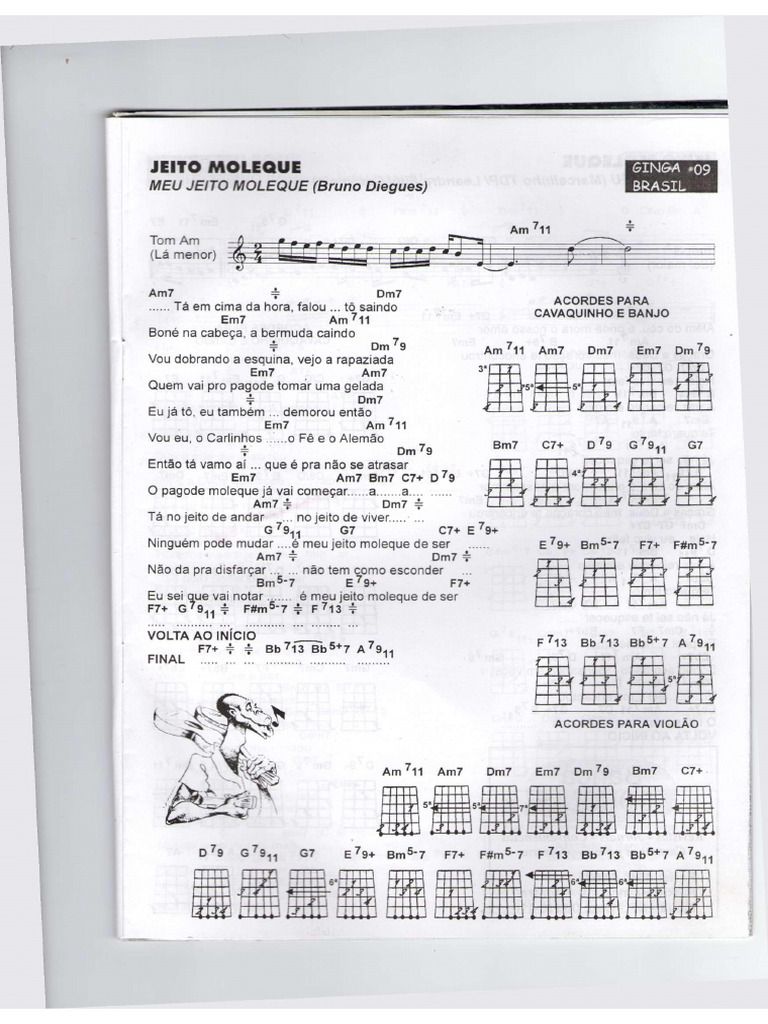 JEITO MOLEQUE
MEU JEITO MOLEQUE (Bruno Diegues)
GINGA #09
BRASIL
Am 7 11
Tom Am
(Lá menor)
2
4
Am7 Dm7
...... Tá em cima da hora, falou ... tô saindo
Em7 Am 7 11
Boné na cabeça, a bermuda caindo
Dm 7 9
Vou dobrando a esquina, vejo a rapaziada
Em7 Am7
Quem vai pro pagode tomar uma gelada
Dm7
Eu já tô, eu também ... demorou então
Em7 Am 7 11
Vou eu, o Carlinhos ......o Fê e o Alemão
Dm 7 9
Então tá vamo aí ... que é pra não se atrasar
Em7 Am7 Bm7 C7+ D 7 9
O pagode moleque já vai começar......a.......a.... ......
Am7 Dm7
Tá no jeito de andar ... no jeito de viver..... ...
G 7 9 11 G7 C7+ E 7 9+
Ninguém pode mudar ....é meu jeito moleque de ser ......
Am7 Dm7
Não da pra disfarçar ... não tem como esconder ...
Bm5-7 E 7 9+ F7+
Eu sei que vai notar ...... é meu jeito moleque de ser
F7+ G 7 9 11 F#m5-7 F 7 13
VOLTA AO INÍCIO
F7+ Bb 7 13 Bb 5+ 7 A 7 9 11
FINAL
ACORDES PARA
CAVAQUINHO E BANJO
Am 7 11 Am7 Dm7 Em7 Dm 7 9
3ª 5ª 5ª
Bm7 C7+ D 7 9 G 7 9 11 G7
4ª
E 7 9+ Bm5-7 F7+ F#m5-7
F 7 13 Bb 7 13 Bb 5+ 7 A 7 9 11
5ª
ACORDES PARA VIOLÃO
Am 7 11 Am7 Dm7 Em7 Dm 7 9 Bm7 C7+
5ª 5ª 7ª
D 7 9 G 7 9 11 G7 E 7 9+ Bm5-7 F7+ F#m5-7 F 7 13 Bb 7 13 Bb 5+ 7 A 7 9 11
6ª 6ª 6ª